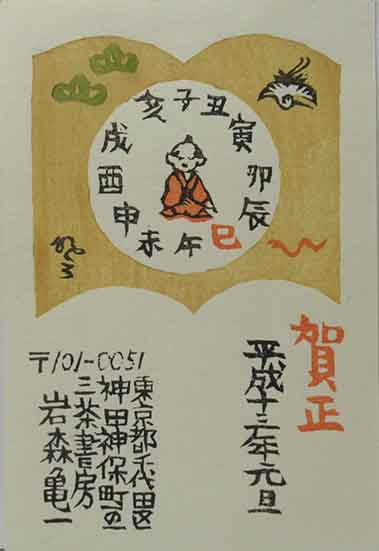 子丑寅卯辰巳午未申酉戌亥
賀正
平成十三年元旦
〒101-0051
東京都千代田区
神田神保町
三茶書房
岩森亀一